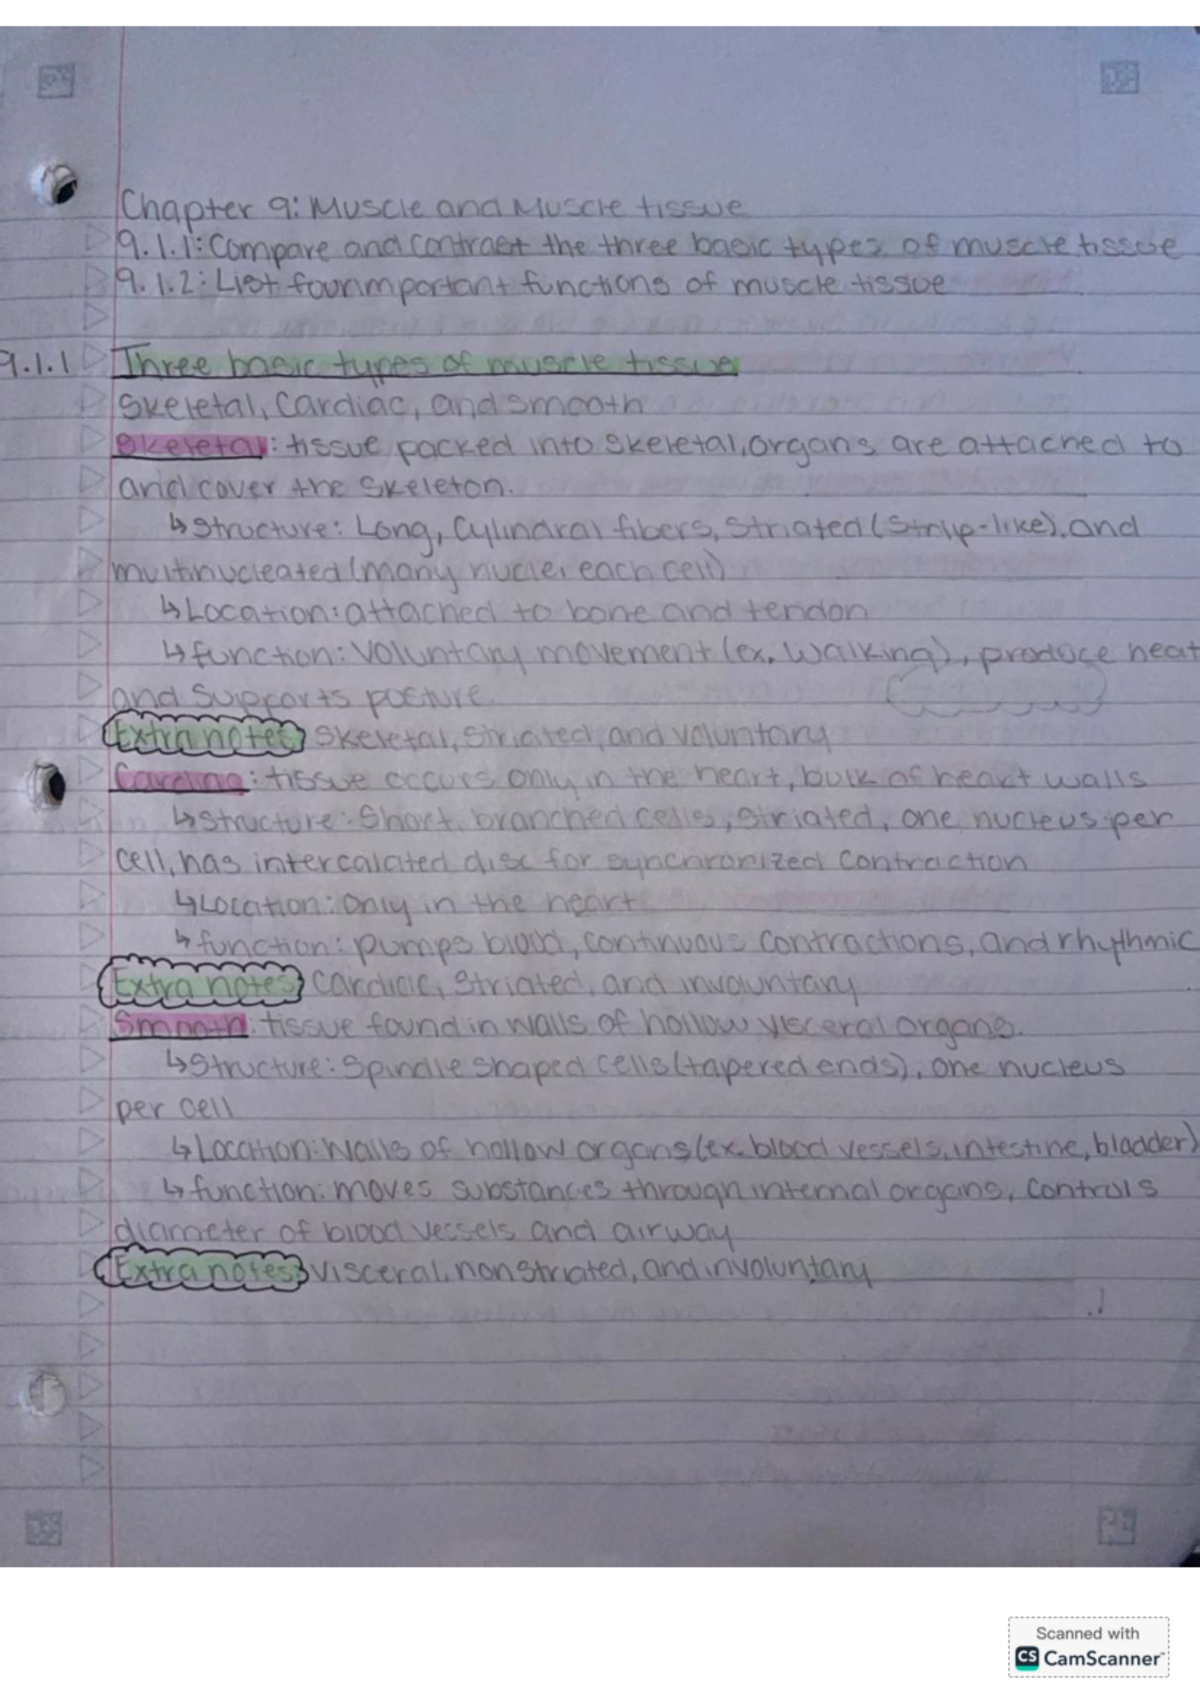 Chapter 9: Muscle and Muscle tissue
9.1.1: Compare and contrast the three basic types of muscle tissue
9.1.2: List four important functions of muscle tissue
9.1.1 Three basic types of muscle tissue
Skeletal, Cardiac, and smooth
Skeletal: tissue packed into skeletal, organs are attached to
and cover the skeleton.
↳ Structure: Long, Cylindral fibers, Striated (Strip-like), and
multinucleated (many nuclei each cell)
↳ Location: attached to bone and tendon
↳ function: Voluntary movement (ex. Walking), produce heat
and supports posture.
Extra notes: Skeletal, striated, and voluntary
Cardiac: tissue occurs only in the heart, bulk of heart walls
↳ Structure: Short, branched cells, striated, one nucleus per
cell, has intercalated disc for synchronized contraction
↳ Location: only in the heart
↳ function: pumps blood, continuous contractions, and rhythmic
Extra notes: Cardiac, Striated, and involuntary
Smooth: tissue found in walls of hollow visceral organs.
↳ Structure: Spindle shaped cells (tapered ends), one nucleus
per cell
↳ Location: Walls of hollow organs (ex. blood vessels, intestine, bladder)
↳ function: moves substances through internal organs, controls
diameter of blood vessels and airway
Extra notes: visceral, nonstriated, and involuntary
Scanned with
CS CamScanner